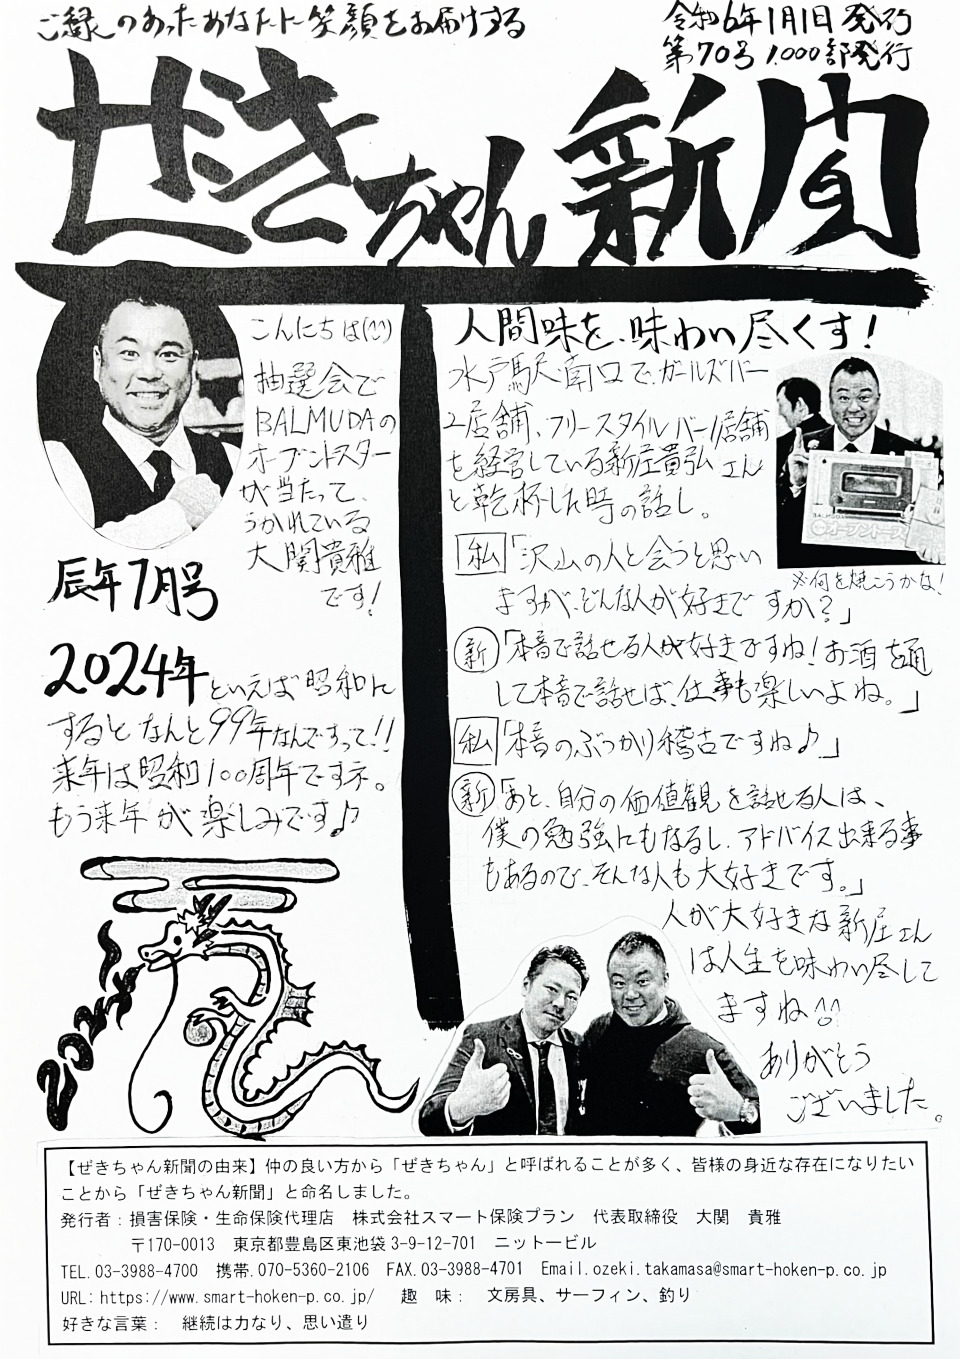 ご縁のあったあなたに笑顔をお届けする
令和6年1月1日発行
第70号 1,000部発行
ぜきちゃん新聞
こんにちは(^^)
抽選会で
BALMUDAの
オーブントースター
が当たって、
うかれている
大関貴雅
です!
辰年1月号
2024年といえば昭和に
するとなんと99年なんですって!!
来年は昭和100周年ですネ。
もう来年が楽しみです♪
2024
人間味を、味わい尽くす!
水戸駅南口でガールズバー
2店舗、フリースタイルバー1店舗
を経営している新庄貴弘さん
と乾杯した時の話し。
BALMUDA
オーブントースター
※何を焼こうかな!
私「沢山の人と会うと思い
ますが、どんな人が好きですか?」
新「本音で話せる人が好きですね!お酒を通
して本音で話せば、仕事も楽しいよね。」
私「本音のぶつかり稽古ですね♪」
新「あと、自分の価値観を話せる人は、
僕の勉強にもなるし、アドバイス出来る事
もあるので、そんな人も大好きです。」
人が大好きな新庄さん
は人生を味わい尽して
ますね^^
ありがとう
ございました。
【ぜきちゃん新聞の由来】仲の良い方から「ぜきちゃん」と呼ばれることが多く、皆様の身近な存在になりたい
ことから「ぜきちゃん新聞」と命名しました。
発行者：損害保険・生命保険代理店　株式会社スマート保険プラン　代表取締役　大関　貴雅
〒170-0013　東京都豊島区東池袋3-9-12-701　ニットービル
TEL.03-3988-4700　携帯.070-5360-2106　FAX.03-3988-4701　Email.ozeki.takamasa@smart-hoken-p.co.jp
URL: https://www.smart-hoken-p.co.jp/　趣　味：　文房具、サーフィン、釣り
好きな言葉：　継続は力なり、思い遣り